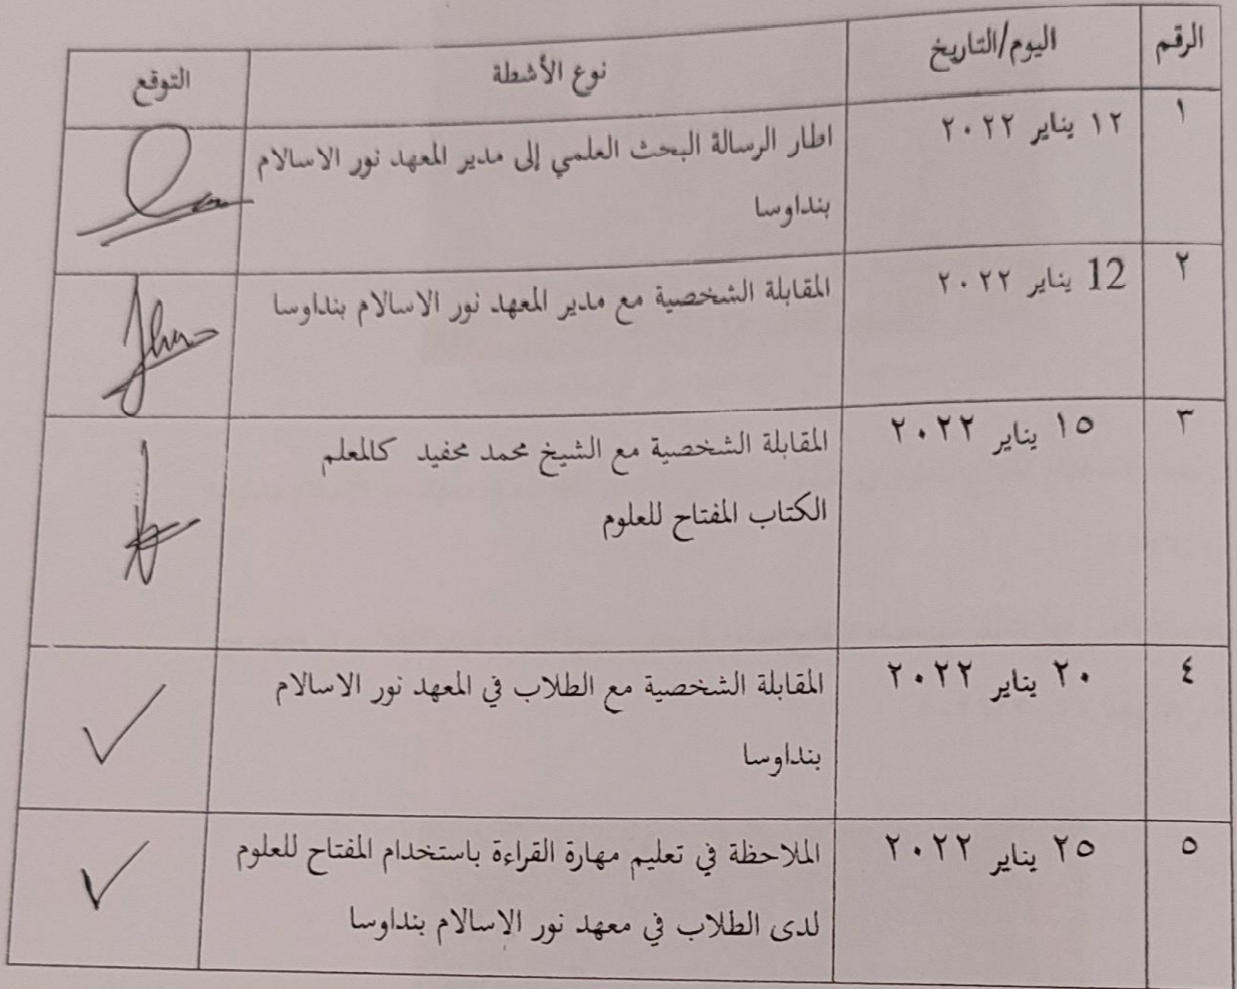 الرقم اليوم/التاريخ نوع الأشطة التوقع
١ ١٢ يناير ٢٠٢٢ اطار الرسالة البحث العلمي إلى مدير المعهد نور الاسالام
بنداوسا
٢ 12 يناير ٢٠٢٢ المقابلة الشخصية مع مدير المعهد نور الاسالام بنداوسا
٣ ١٥ يناير ٢٠٢٢ المقابلة الشخصية مع الشيخ محمد محفيد كالمعلم
الكتاب المفتاح للعلوم
٤ ٢٠ يناير ٢٠٢٢ المقابلة الشخصية مع الطلاب في المعهد نور الاسالام
بنداوسا
٥ ٢٥ يناير ٢٠٢٢ الملاحظة في تعليم مهارة القراءة باستخدام المفتاح للعلوم
لدى الطلاب في معهد نور الإسالام بنداوسا